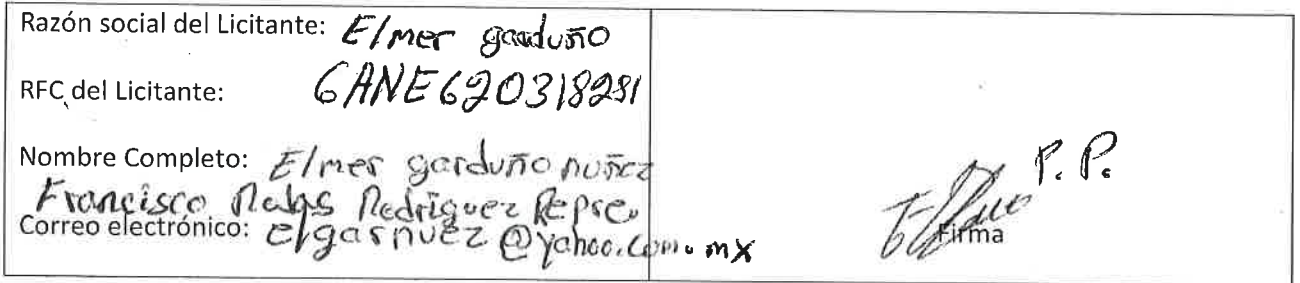 Razón social del Licitante: Elmer garduño
RFC del Licitante: GANE620318281
Nombre Completo: Elmer garduño nuñez
Francisco Rodriguez Repre.
Correo electrónico: elgarnuez@yahoo.com.mx
P.P.
Firma